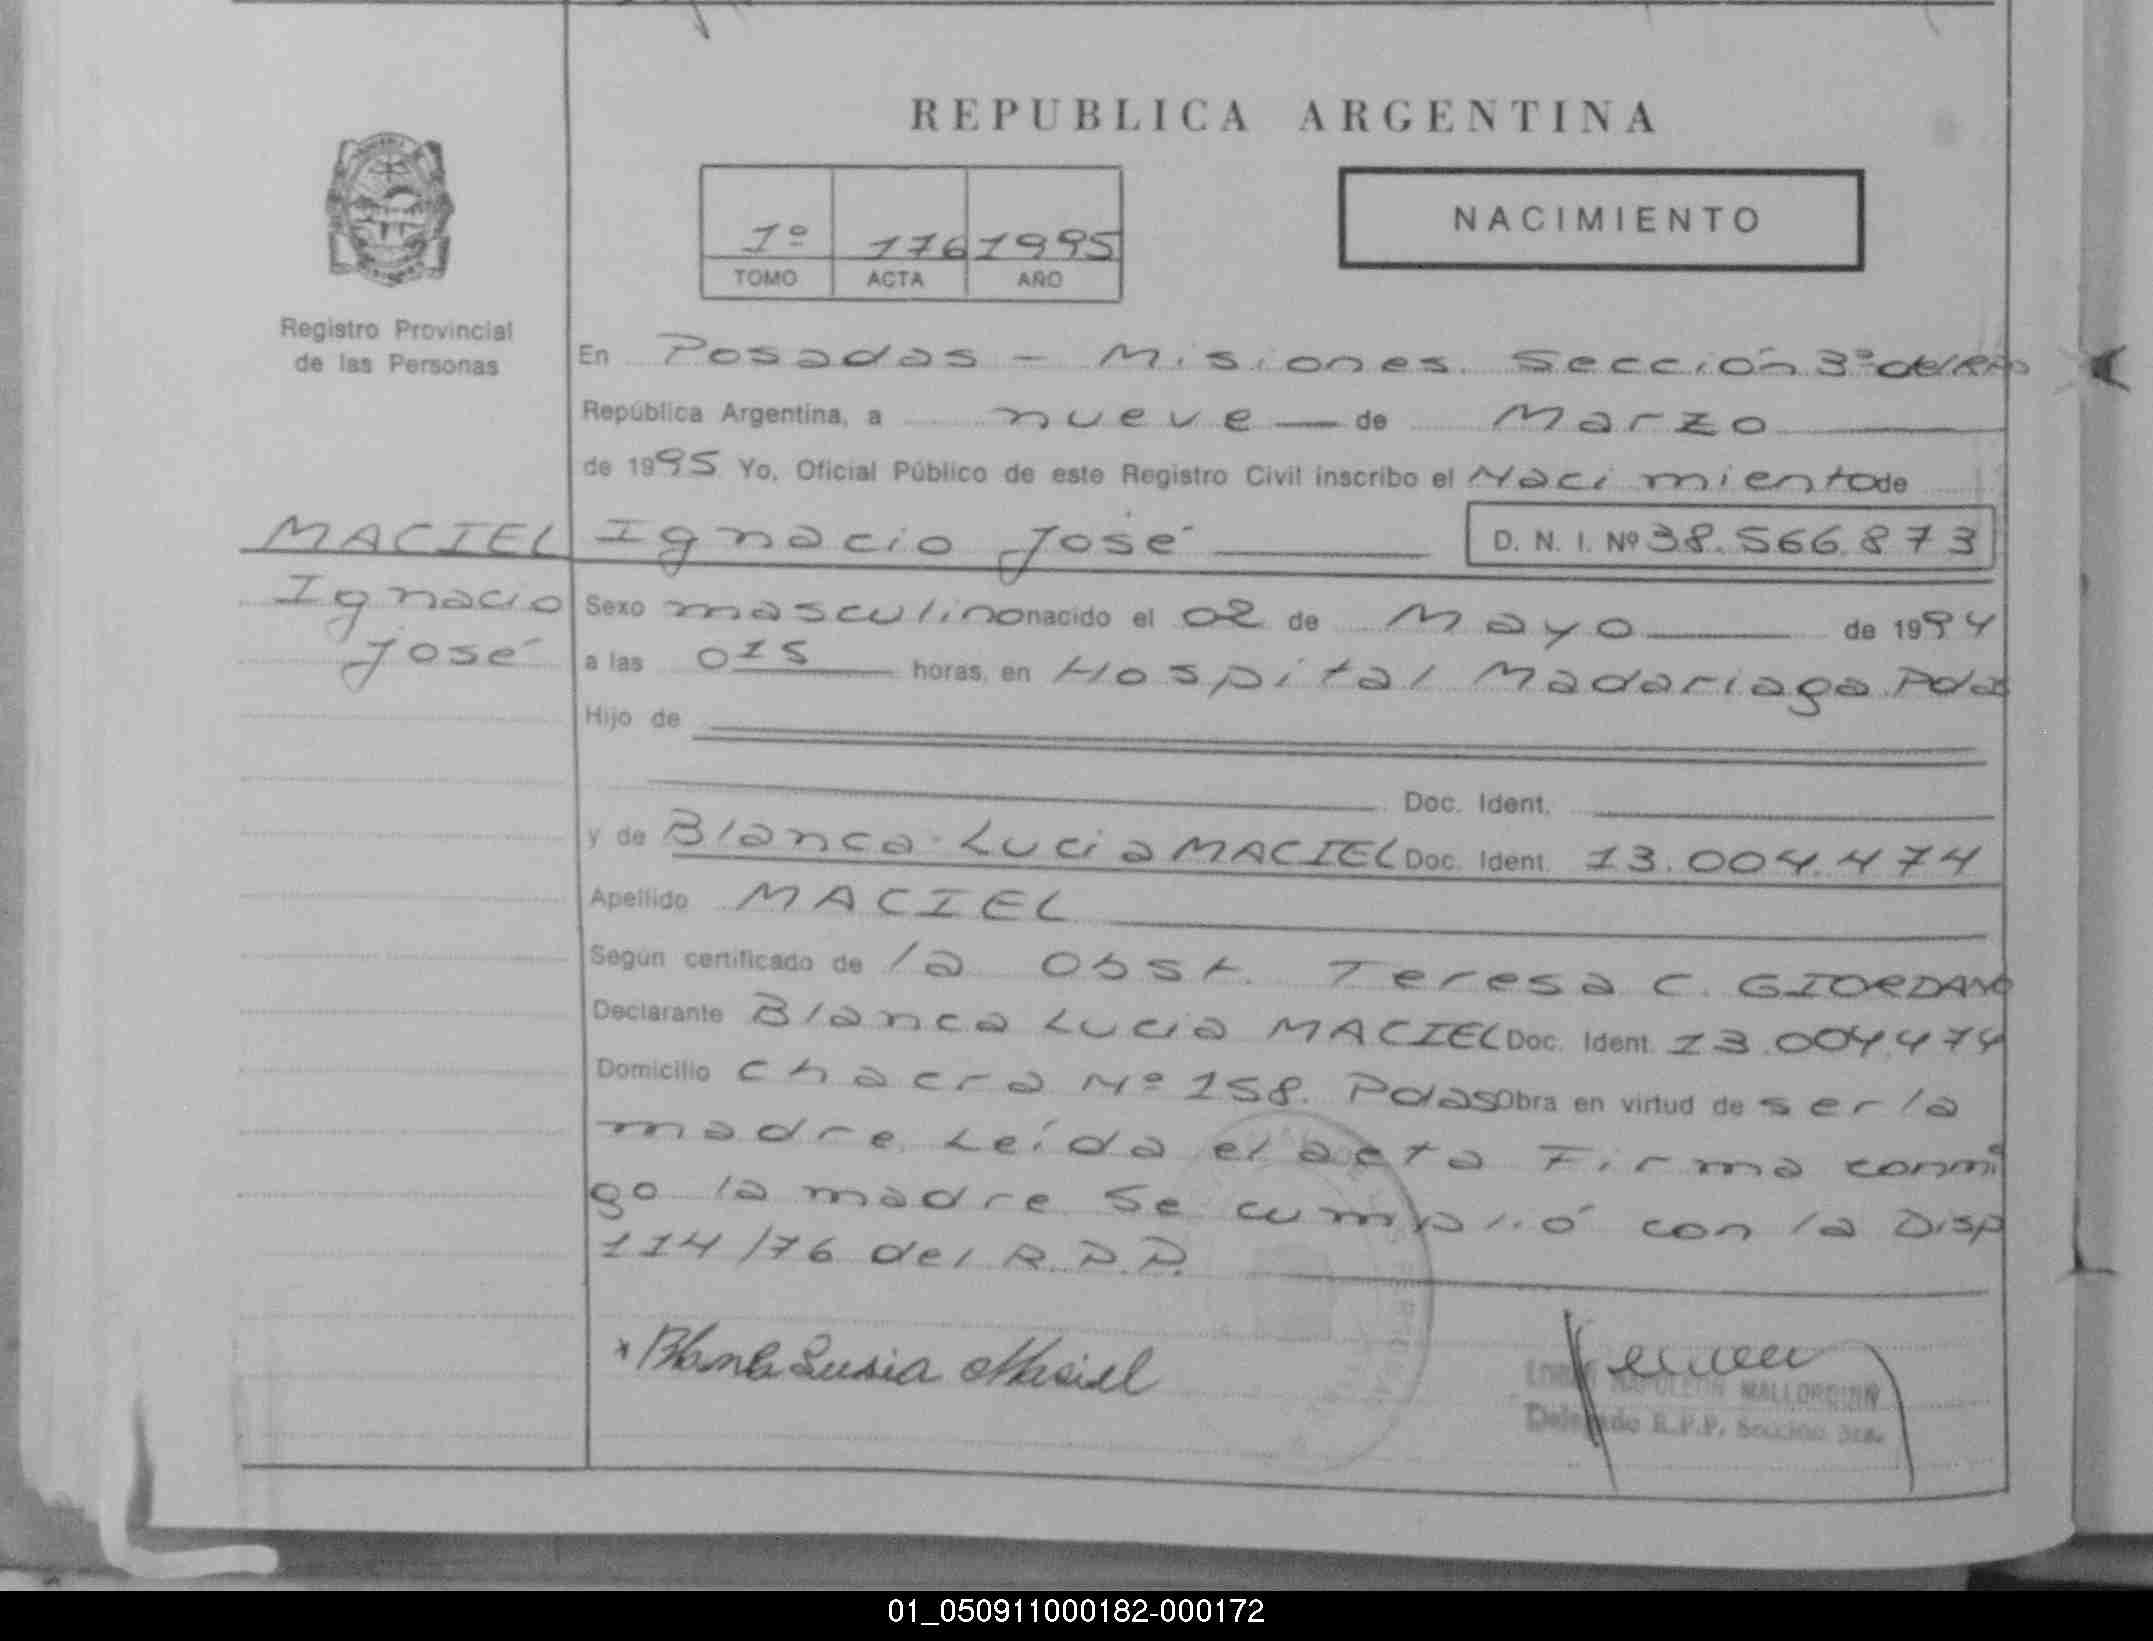 REPUBLICA ARGENTINA
1º 176 1995
TOMO ACTA AÑO
NACIMIENTO
Registro Provincial
de las Personas
En Posadas - Misiones. Sección 3ª del
República Argentina, a nueve de Marzo
de 1995 Yo, Oficial Público de este Registro Civil inscribo el Nacimiento de
MACIEL Ignacio José D. N. I. Nº 38.566.873
Ignacio
José
Sexo masculino nacido el 02 de Mayo de 1994
a las 015 horas, en Hospital Madariaga Pdas
Hijo de
Doc. Ident.
y de Blanca Lucia MACIEL Doc. Ident. 13.004.474
Apellido MACIEL
Según certificado de la Obst. Teresa C. GIORDANO
Declarante Blanca Lucia MACIEL Doc. Ident. 13.004.474
Domicilio Chacra Nº 158. Pdas Obra en virtud de ser la
madre. Leída el acta Firma conmi
go la madre Se cumplió con la Disp
114/76 del R.P.P.
x Blanca Lusia Masiel
NAPOLEON MALLORQUIN
Delegado R.P.P. Sección 3ra.
01_050911000182-000172